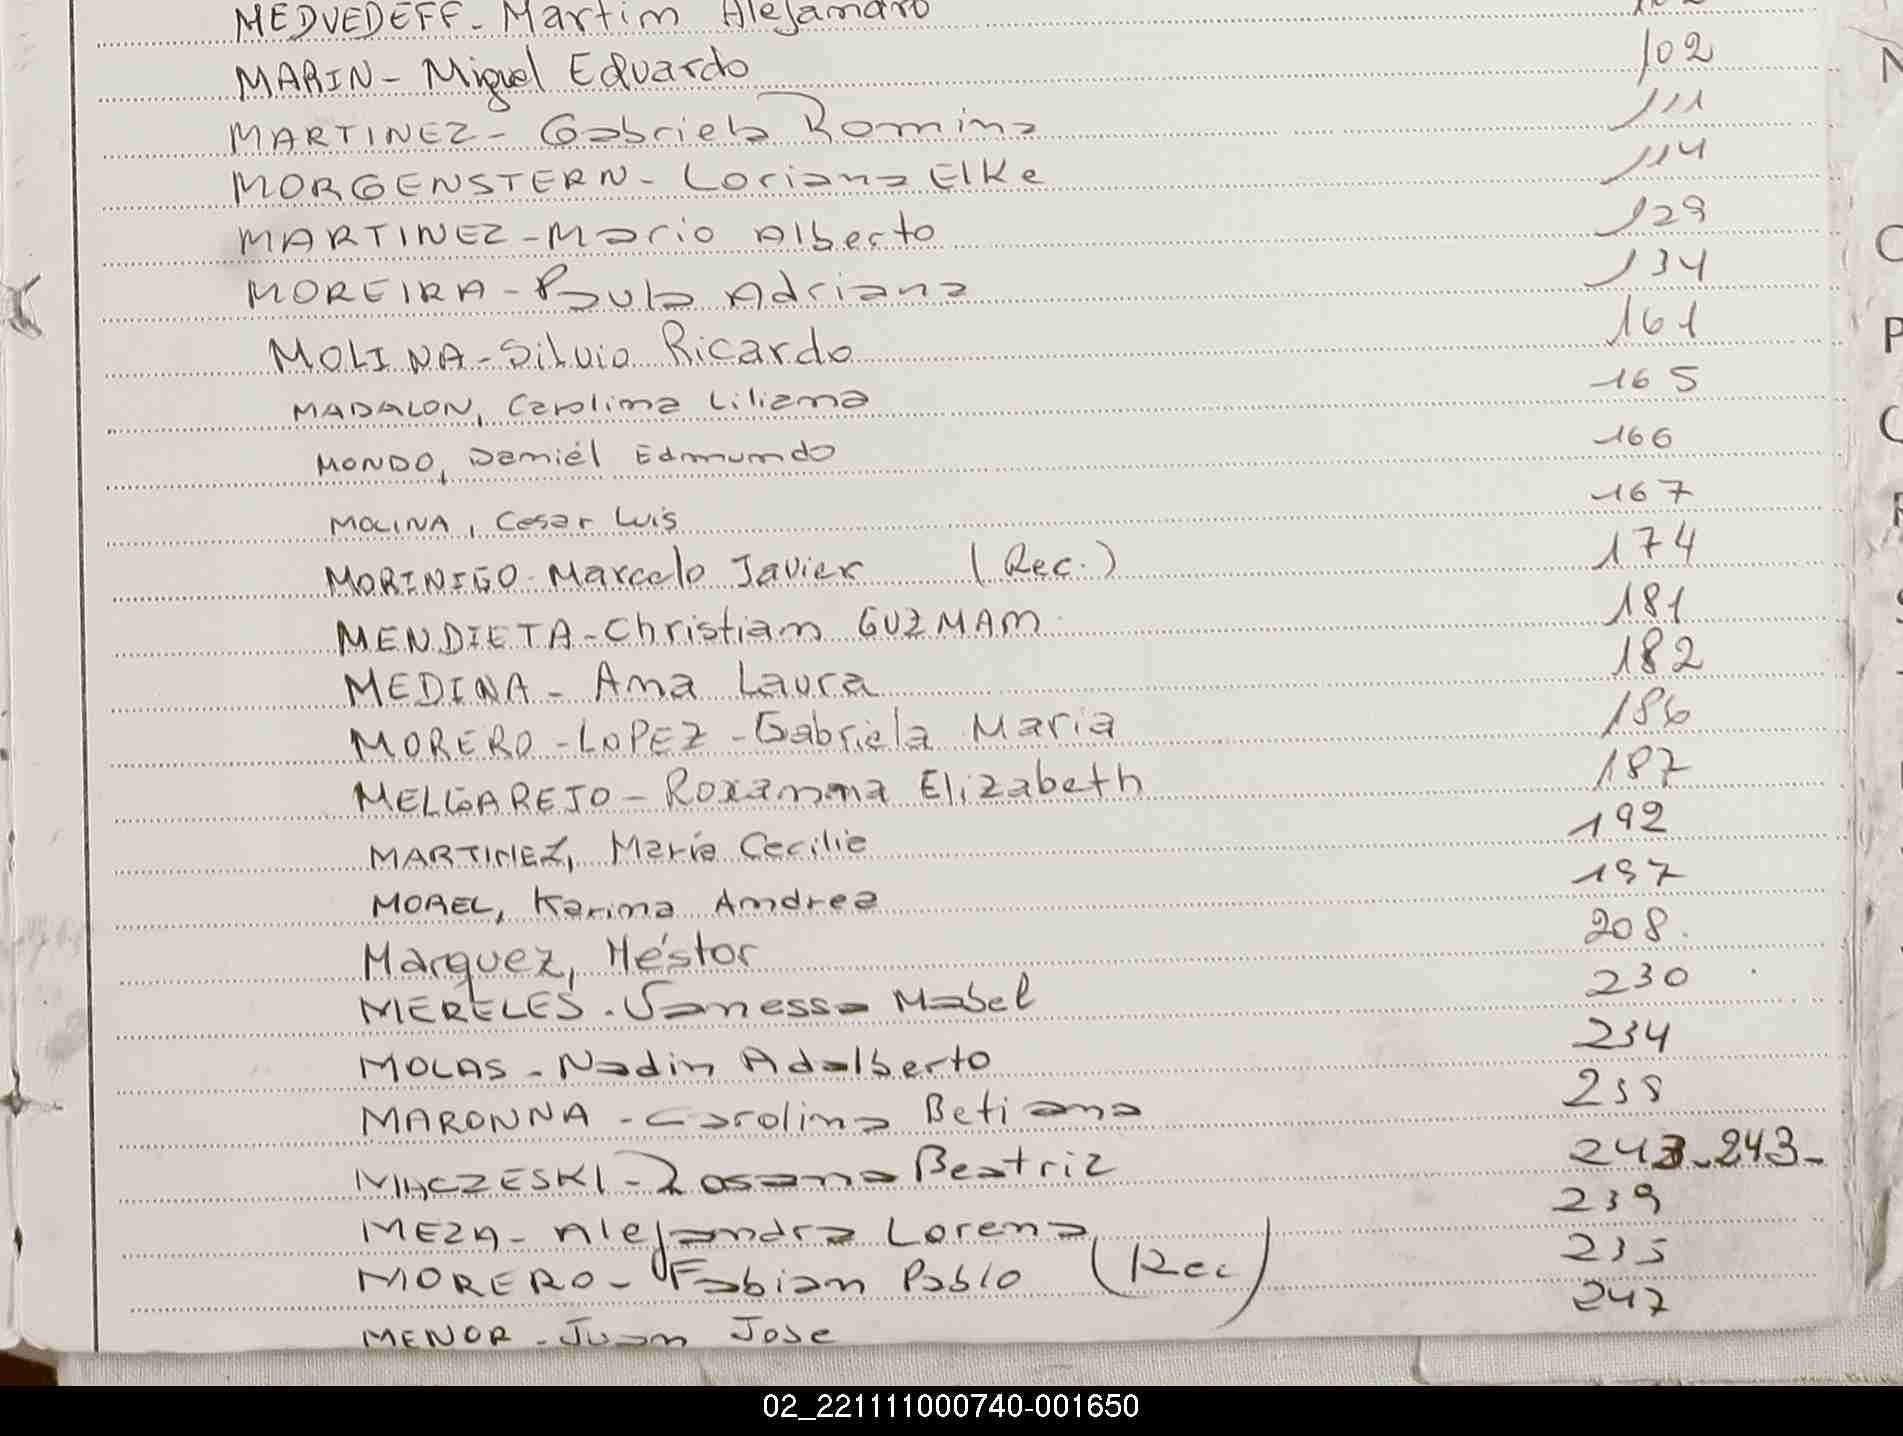 MEDVEDEFF - Martin Alejandro
MARIN - Miguel Eduardo 102
MARTINEZ - Gabriela Romina 111
MORGENSTERN - Loriana Elke 114
MARTINEZ - Mario Alberto 129
MOREIRA - Paula Adriana 134
MOLINA - Silvio Ricardo 161
MADALON, Carolina Liliana 165
MONDO, Daniel Edmundo 166
MOLINA, Cesar Luis 167
MORINIGO - Marcelo Javier (Rec.) 174
MENDIETA - Christian GUZMAN 181
MEDINA - Ana Laura 182
MORERO - LOPEZ - Gabriela Maria 186
MELGAREJO - Roxanna Elizabeth 187
MARTINEZ, María Cecilia 192
MOREL, Karina Andrea 197
Marquez, Héstor 208.
MERELES - Vanessa Mabel 230
MOLAS - Nadin Adalberto 234
MARONNA - Carolina Betiana 238
MACZESKI - Rosana Beatriz 243 - 243 -
MEZA - Alejandra Lorena 239
MORERO - Fabian Pablo (Rec) 235
MENOR - Juan Jose 247
N
O
P
Q
R
S
02_221111000740-001650